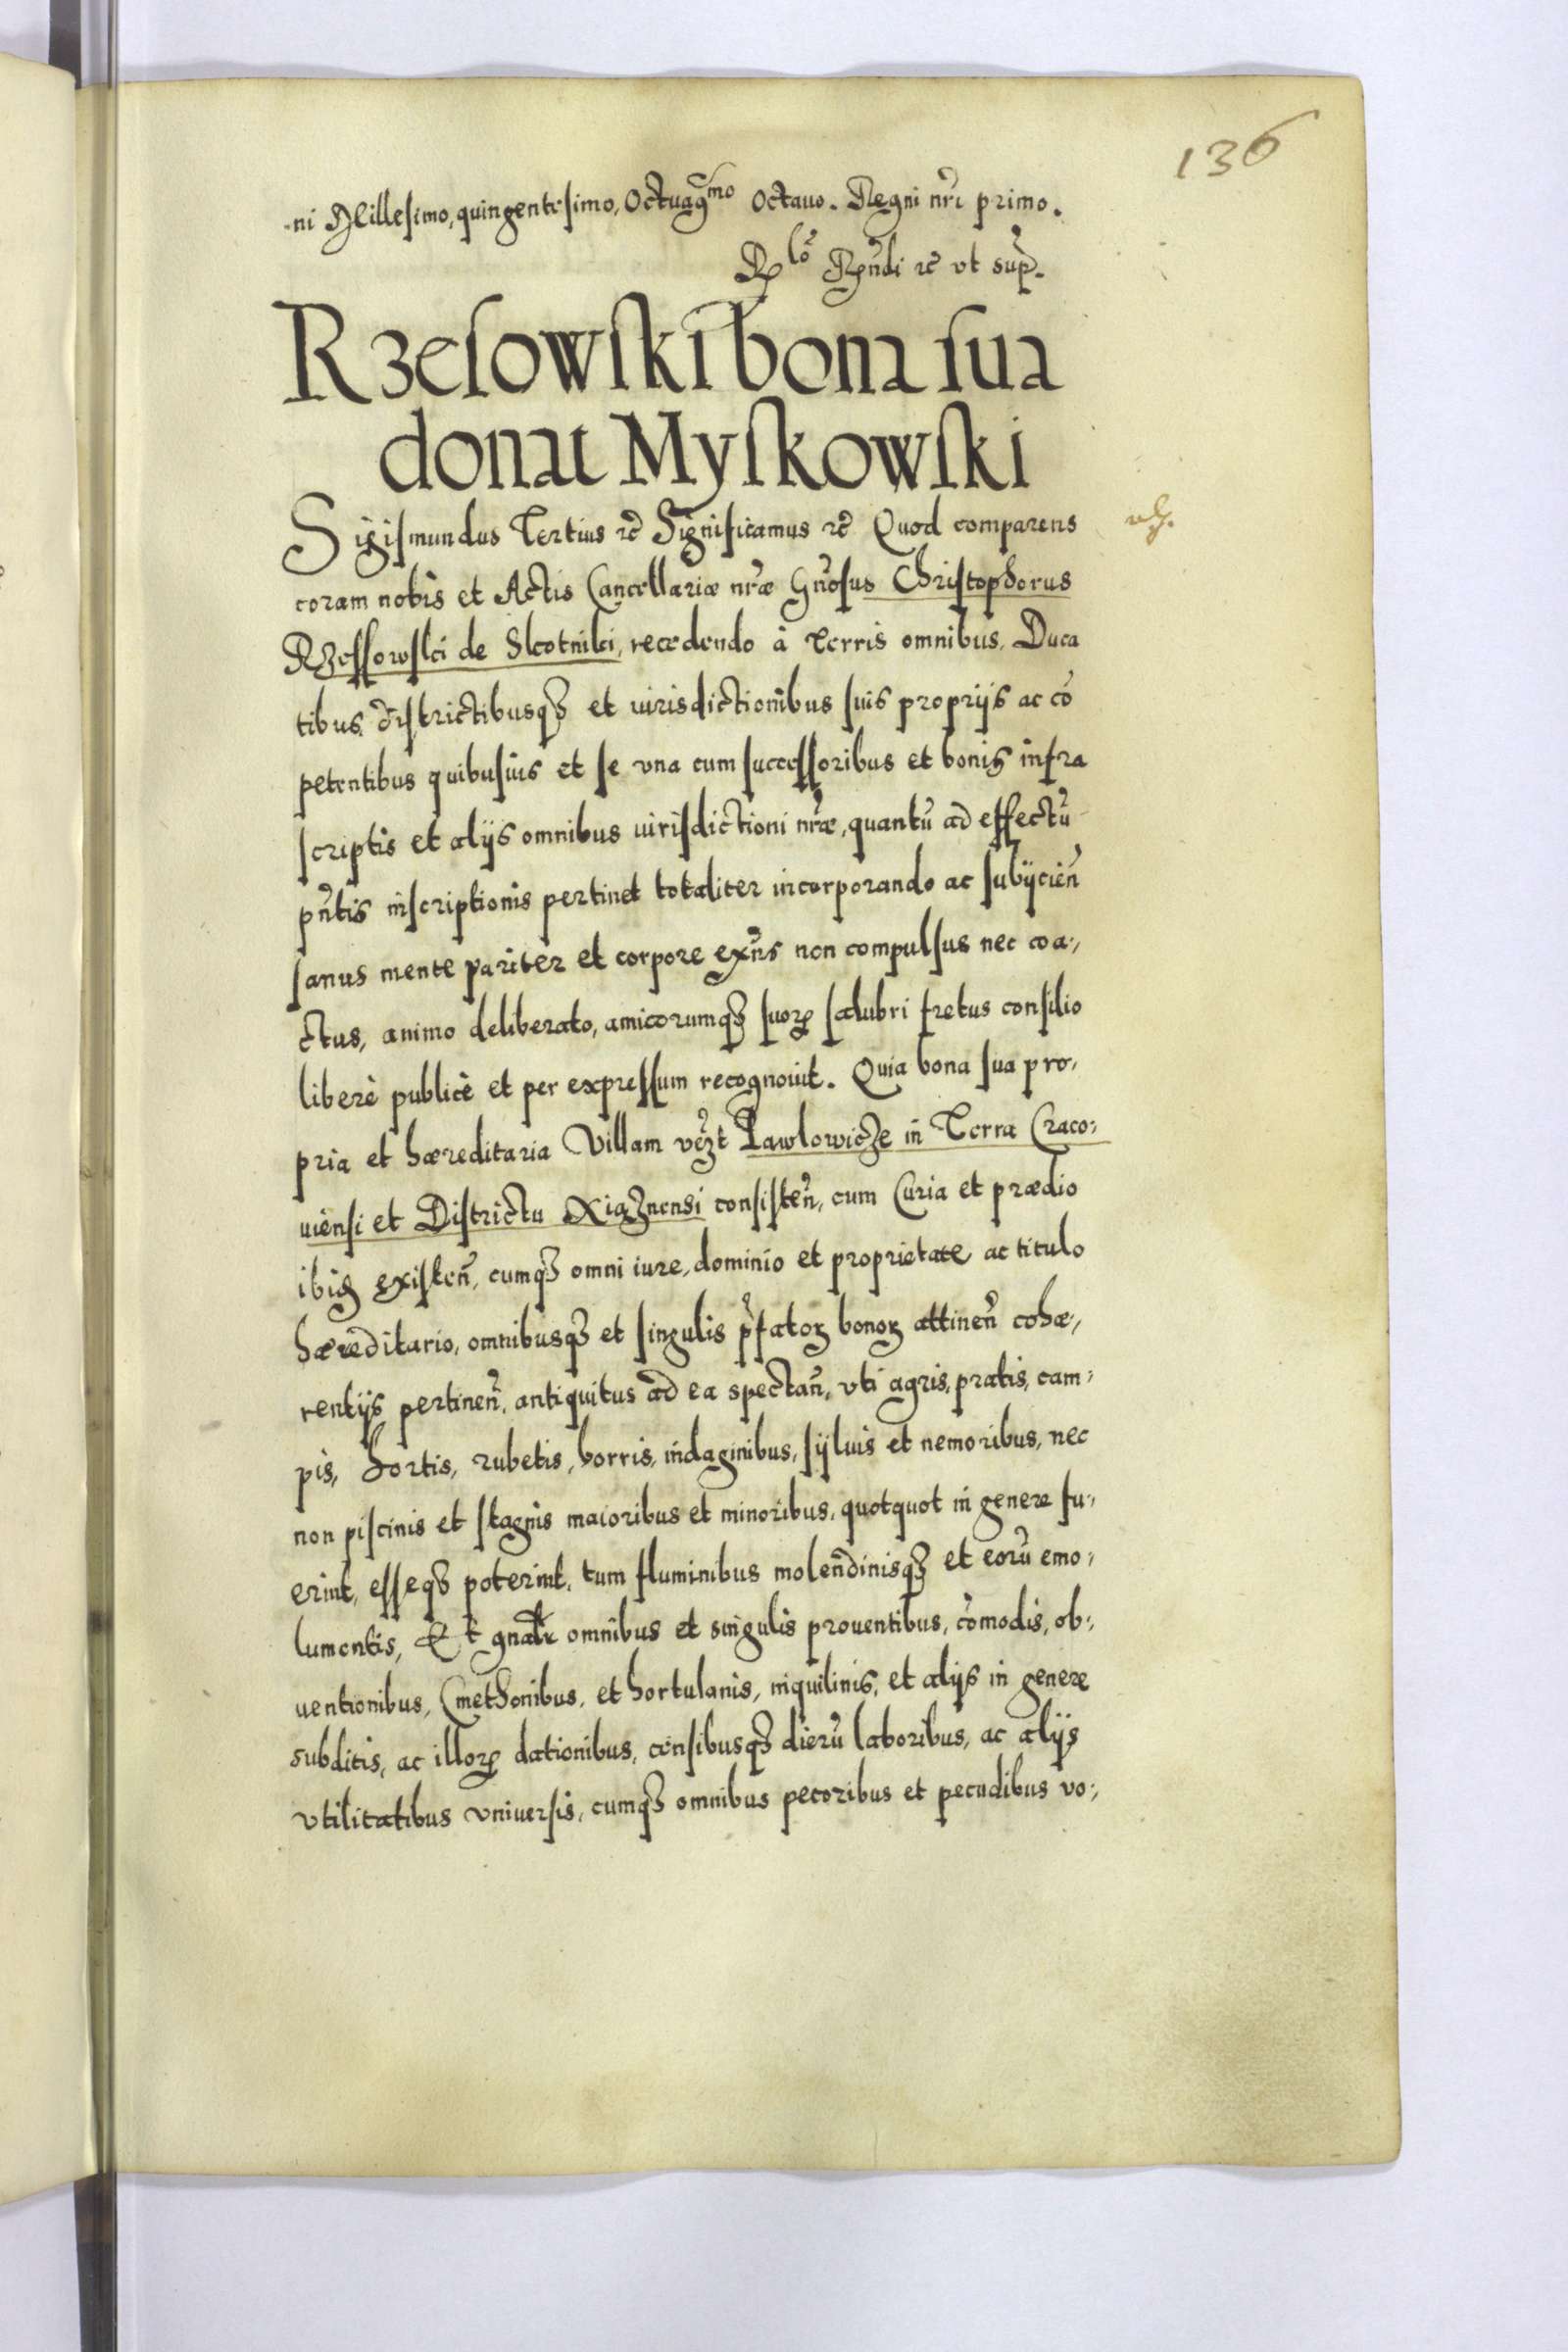 136
-ni Millesimo, quingentesimo, Octuagᵐᵒ Octauo. Regni nrĩ primo.
Rlõ Rñdi rc̃ vt sup̃.
Rzesowski bona sua
donat Myskowski
Sigismundus Tertius rc̃ Significamus rc̃ Quod comparens
coram nobis et Actis Cancellariæ nr̃æ Gñosus Christophorus
Rzessowski de Skotniki, recedendo à Terris omnibus, Duca
tibus, districtibusqȝ et iurisdictionibus suis proprijs ac cõ
petentibus quibusuis et se vna cum successoribus et bonis infra
scriptis et alijs omnibus iurisdictioni nr̃æ, quantũ ad effectũ
pñtis inscriptionis pertinet totaliter incorporando ac subijcieñ
sanus mente pariter et corpore exñs non compulsus nec coa-,
ctus, animo deliberato, amicorumqȝ suoꝝ salubri fretus consilio
liberè publicè et per expressum recognouit. Quia bona sua pro-,
pria et hæreditaria Villam vz̃t Pawlowicze in Terra Craco-
uiensi et Districtu Xiąznensi consisteñ, cum Curia et prædio
ibiꝫ existeñ, cumqȝ omni iure, dominio et proprietate ac titulo
hæreditario, omnibusqȝ et singulis p̃fatoꝝ bonoꝝ attineñ cohæ-,
rentijs pertineñ, antiquitus ad ea spectañ, vti agris, pratis, cam-
pis, hortis, rubetis, borris, indaginibus, syluis et nemoribus, nec
non piscinis et stagnis maioribus et minoribus, quotquot in genere fu-,
erint, esseqȝ poterint, tum fluminibus molendinisqȝ et eorũ emo-,
lumentis, Et gnãlr omnibus et singulis prouentibus, cõmodis, ob-,
uentionibus, Cmethonibus, et hortulanis, inquilinis, et alijs in genere
subditis, ac illoꝝ dationibus, censibusqȝ dierũ laboribus, ac alijs
vtilitatibus vniuersis, cumqȝ omnibus pecoribus et pecudibus vo-,